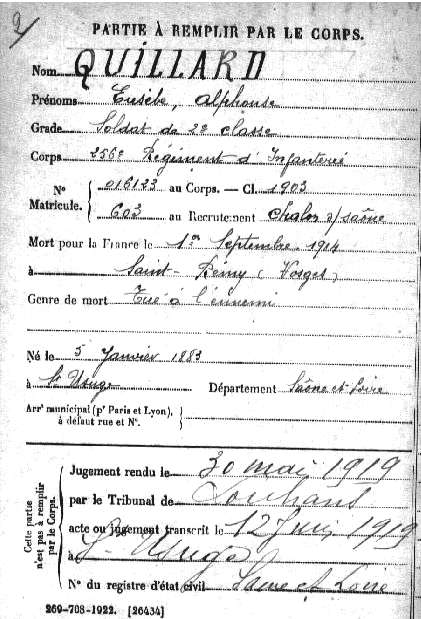 PARTIE À REMPLIR PAR LE CORPS.
Nom QUILLARD
Prénoms Eusèbe, Alphonse
Grade Soldat de 2e classe
Corps 256e Régiment d'Infanterie
N° Matricule. 016123 au Corps. — Cl. 1903
603 au Recrutement Chalon s/ Saône
Mort pour la France le 1er Septembre 1914
à Saint-Rémy (Vosges)
Genre de mort Tué à l'ennemi
Né le 5 Janvier 1883
à St Usuge Département Saône et Loire
Arrt municipal (pr Paris et Lyon), à défaut rue et N°.
Cette partie n'est pas à remplir par le Corps.
Jugement rendu le 30 mai 1919
par le Tribunal de Louhans
acte ou jugement transcrit le 12 Juin 1919
à St Usuge
N° du registre d'état civil Saône et Loire
269-708-1922. [26434]